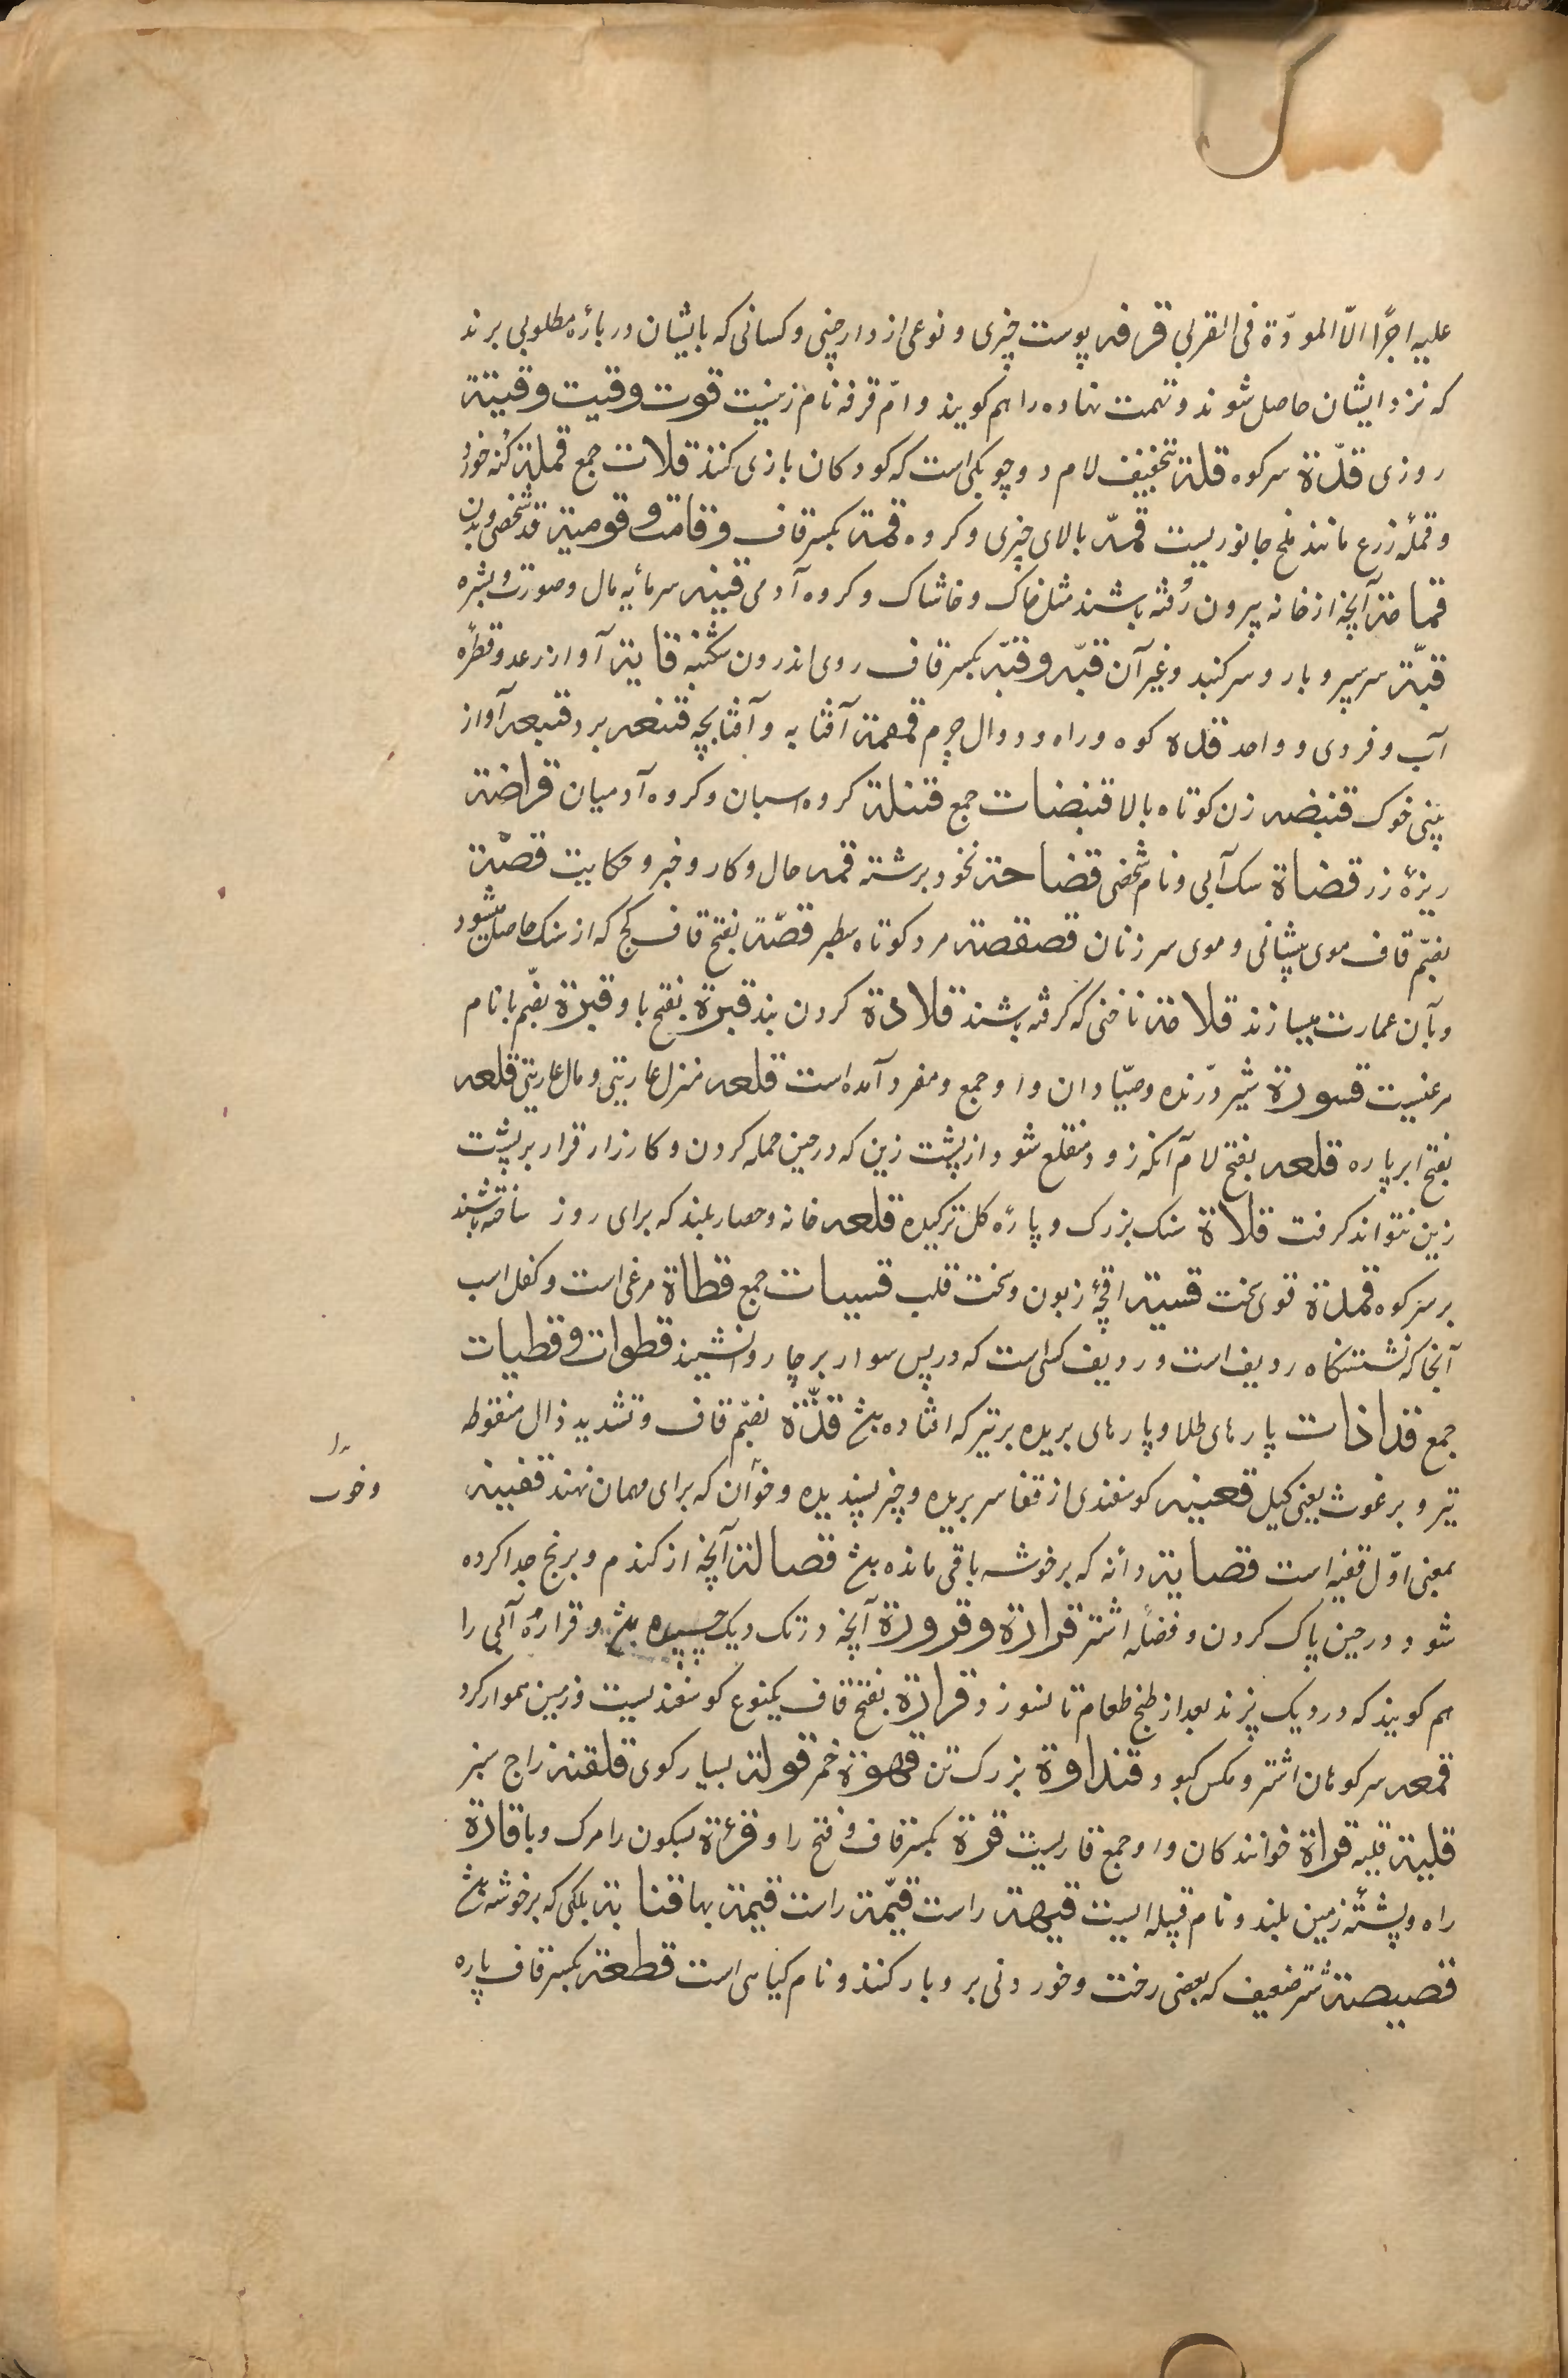 علیه اجرًا الّا المودّة فی القربی قرفه پوست چیزی و نوعی از دارچینی و کسانی که بایشان در بارهٔ مطلوبی برند
که نزد ایشان حاصل شوند و تهمت نهاده را هم کویند و امّ قرفه نام زنیست قوت و قیت و قیته
روزی قلّة سر کوه قلة بتخفیف لام دو چوبکی است که کودکان بازی کنند قلات جمع قملة کنه خورد
و قملهٔ زرع مانند ملخ جانوریست قمّه بالای چیزی و کروه قمة بکسر قاف و قامت و قومیة قد شخص و بدن
قمامة آنچه از خانه بیرون رُفته باشند مثل خاک و خاشاک و کروه آدمی قنیه سرمایهٔ مال و صورت و بشره
قبّة سر سپر و بار و سر کنبد و غیر آن قبّه و قبّه بکسر قاف روی اندرون شکنبه قابة آواز رعد و قطرهٔ
آب و فروی و واحد قده کوه و راه و دوال چرم قمقمة آفتابه و آفتابچه قنبعه برد قنبعه آواز
بینی خوک قنبضه زن کوتاه بالا قنبضات جمع قنبلة کروه اسبان و کروه آدمیان قراضة
ریزهٔ زر قضاة سک آبی و نام شخصی قضاحة نخود برشته قمه حال و کار و خبر و حکایت قصّة
بضمّ قاف موی پیشانی و موی سر زنان قصقصة مرد کوتاه سطبر قصّة بفتح قاف کج که از سنک حاصل میشود
و بآن عمارت میسازند قلامة ناخنی که کرفته باشند قلادة کردن بند قبرة بفتح با و قبرة بضم با نام
مرغیست قسورة شیر درّنده و صیّادان و او جمع و مفرد آمده است قلعه منزل عاریتی و مال عاریتی قلعه
بفتح ابر پاره قلعه بفتح لام آنکه زود منقلع شود از پشت زین که در حین حمله کردن و کارزار قرار بر پشت
زین نتواند کرفت قلاة سنک بزرک و پارهٔ کل ترکیده قلعه خانه و حصار بلند که برای روز ساخته باشند
بر سر کوه قمدة قوی سخت قسیة اقچهٔ زبون و سخت قلب قسیات جمع قطاة مرغی است و کفل اسب
آنجا که نشستنکاه ردیف است و ردیف کسی است که در پس سوار بر چاروا نشیند قطوات و قطیات
جمع قذاذات پارهای طلا و پارهای بریده بر تیر که افتاده باشد قذّة بضمّ قاف و تشدید ذال منقوطه
تیر و برغوث یعنی کیل قعینه کوسفندی از قفا سر بریده و چیز پسندیده و خوان که برای مهمان نهند قفینه
بمعنی اوّل قفیه است قصایة دانه که بر خوشه باقی مانده باشد قصالة آنچه از کندم و برنج جدا کرده
شود در حین پاک کردن و فضلهٔ اشتر قرارة و قرورة آنچه در تک دیک چسپیده باشد و قرارهٔ آبی را
هم کویند که در دیک پزند بعد از طبخ طعام تا نسوزد و قرارة بفتح قاف یکنوع کوسفندیست و زمین هموار کرد
قمعه سر کوهان اشتر و مکس کبود قنداوة بزرک تن قهوة خمر قولة بسیار کوی قلقنه زاج سبز
قلیة قلیه قراة خوانندکان و او جمع قاریست قرة بکسر قاف و فتح را و قرءة بسکون را مرک و با قارة
راه و پشتهٔ زمین بلند و نام قبیله ایست قیهة راست قیّمة راست قیمة بها قنابة بلکی که بر خوشه باشد
قصیصة شتر ضعیف که بعضی رخت و خوردنی برو بار کنند و نام کیاهی است قطعة بکسر قاف پاره